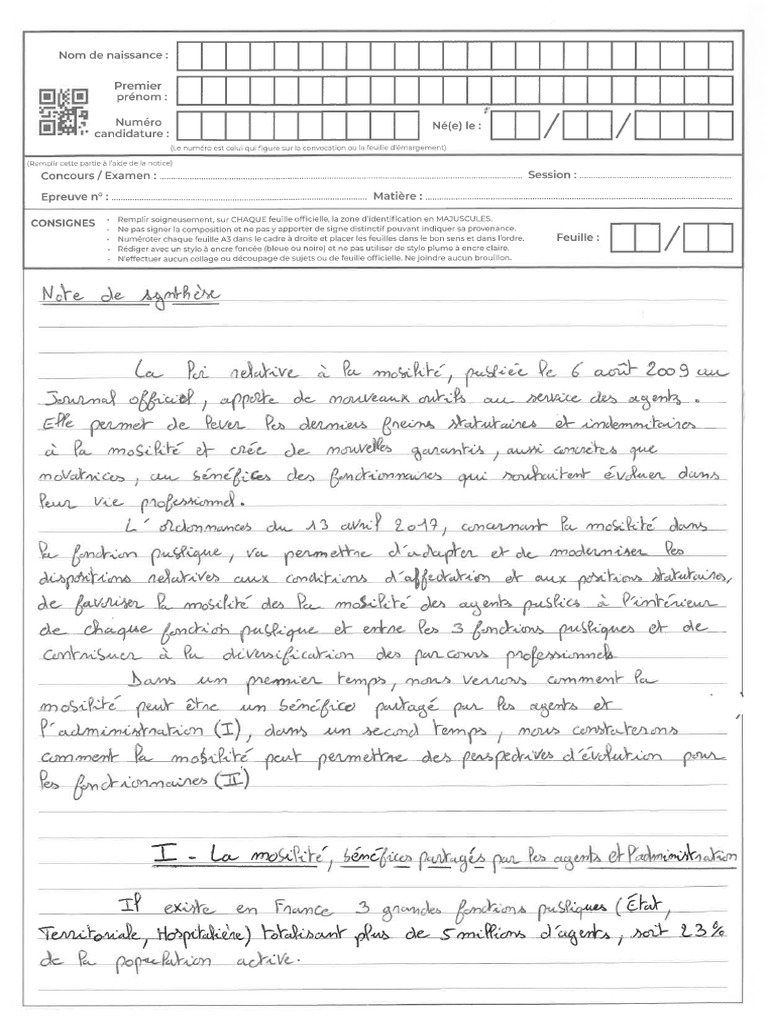 Nom de naissance :
Premier
prénom :
Numéro
candidature :
Né(e) le :
/
/
(Le numéro est celui qui figure sur la convocation ou la feuille d'émargement)
(Remplir cette partie à l'aide de la notice)
Concours / Examen : Session :
Epreuve n° : Matière :
CONSIGNES
• Remplir soigneusement, sur CHAQUE feuille officielle, la zone d'identification en MAJUSCULES.
• Ne pas signer la composition et ne pas y apporter de signe distinctif pouvant indiquer sa provenance.
• Numéroter chaque feuille A3 dans le cadre à droite et placer les feuilles dans le bon sens et dans l'ordre.
• Rédiger avec un stylo à encre foncée (bleue ou noire) et ne pas utiliser de stylo plume à encre claire.
• N'effectuer aucun collage ou découpage de sujets ou de feuille officielle. Ne joindre aucun brouillon.
Feuille : /
Note de synthèse
La loi relative à la mobilité, publiée le 6 août 2009 au
Journal officiel, apporte de nouveaux outils au service des agents.
Elle permet de lever les derniers freins statutaires et indemnitaires
à la mobilité et crée de nouvelles garantis, aussi concrètes que
novatrices, au bénéfices des fonctionnaires qui souhaitent évoluer dans
leur vie professionnel.
L'ordonnances du 13 avril 2017, concernant la mobilité dans
la fonction publique, va permettre d'adapter et de moderniser les
dispositions relatives aux conditions d'affectation et aux positions statutaires,
de favoriser la mobilité des la mobilité des agents publics à l'intérieur
de chaque fonction publique et entre les 3 fonctions publiques et de
contribuer à la diversification des parcours professionnels
Dans un premier temps, nous verrons comment la
mobilité peut être un bénéfice partagé par les agents et
l'administration (I), dans un second temps, nous constaterons
comment la mobilité peut permettre des perspectives d'évolution pour
les fonctionnaires (II)
I - La mobilité, bénéfices partagés par les agents et l'administration
Il existe en France 3 grandes fonctions publiques (État,
Territoriale, Hospitalière) totalisant plus de 5 millions d'agents, soit 23%
de la population active.